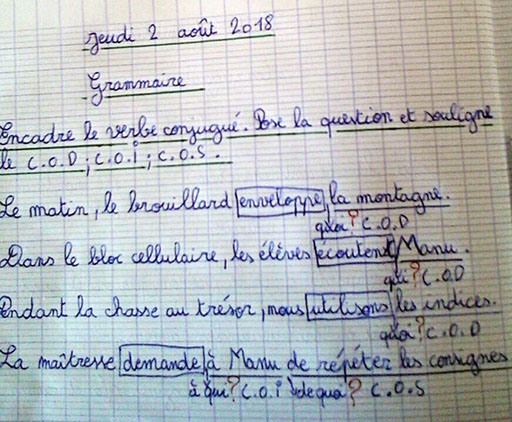 Jeudi 2 août 2018
Grammaire
Encadre le verbe conjugué. Pose la question et souligne
le C.O.D ; C.O.i ; C.O.S.
Le matin, le brouillard enveloppe la montagne.
quoi ? C.O.D
Dans le bloc cellulaire, les élèves écoutent Manu.
qui ? C.O.D
Pendant la chasse au trésor, nous utilisons les indices.
quoi ? C.O.D
La maîtresse demande à Manu de répéter les consignes
à qui ? C.O.i de quoi ? C.O.S